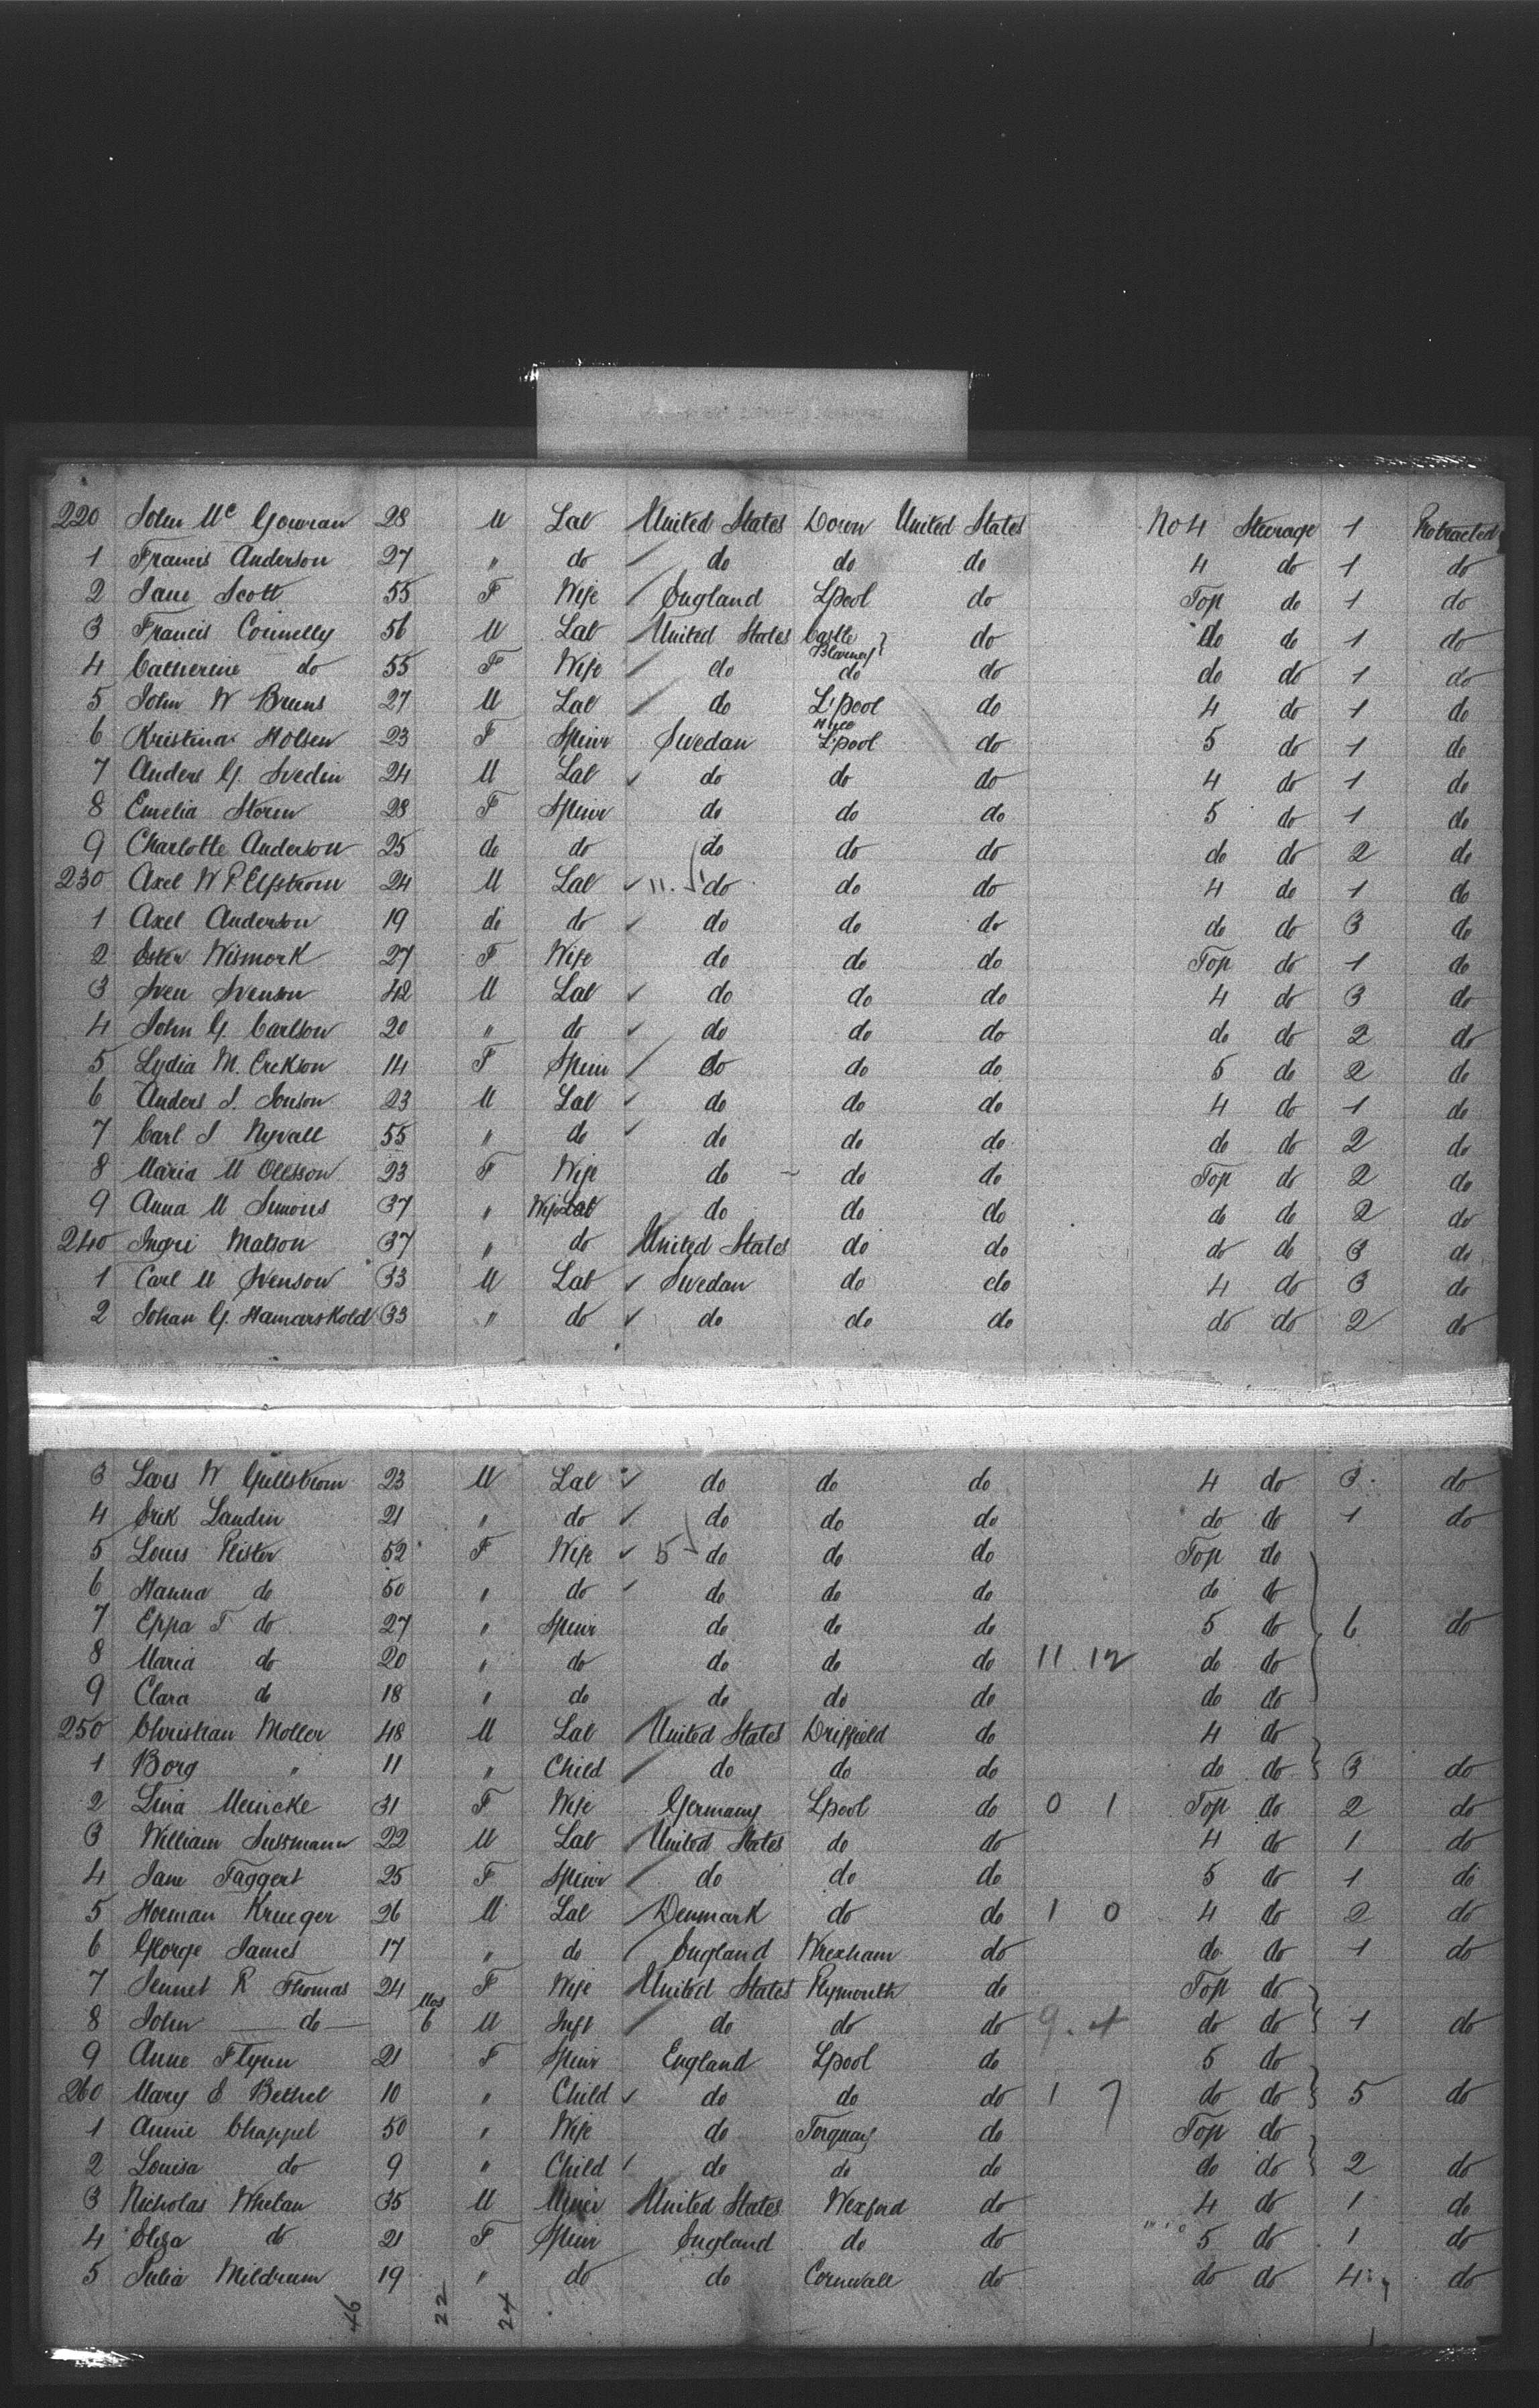 220 John Mc Gowran 28 M Lab United States Down United States No 4 Steerage 1 Protracted
1 Francis Anderson 27 " do do do do 4 do 1 do
2 Jane Scott 55 F Wife England Lpool do Top do 1 do
3 Francis Connelly 56 M Lab United States Castle Blarney } do do do 1 do
4 Catherine do 55 F Wife do do do do do 1 do
5 John W Bruns 27 M Lab do L'pool do 4 do 1 do
6 Kristina Holsen 23 F Spinr Swedan L'pool do 5 do 1 do
7 Anders G. Svedin 24 M Lab do do do 4 do 1 do
8 Emelia Storm 28 F Spinr do do do 5 do 1 do
9 Charlotte Anderson 25 do do do do do do do 2 do
230 Axel W P. Elfstrom 24 M Lab 11. do do do 4 do 1 do
1 Axel Anderson 19 do do do do do do do 3 do
2 Wismork 27 F Wife do do do Top do 1 do
3 Sven Svenson 42 M Lab do do do 4 do 3 do
4 John G. Carlson 20 " do do do do do do 2 do
5 Lydia M. Erckson 14 F Spinr do do do 5 do 2 do
6 Anders J. Jonson 23 M Lab do do do 4 do 1 do
7 Carl J Nyvall 55 " do do do do do do 2 do
8 Maria M Olesson 23 F Wife do do do Top do 2 do
9 Anna M Simons 37 " Wife do do do do do 2 do
240 Ingri Matson 37 " do United States do do do do 3 do
1 Carl M Svenson 33 M Lab Swedan do do 4 do 3 do
2 Johan G. Hamarskold 33 " do do do do do do 2 do
3 Lars W Gullstrom 23 M Lab do do do 4 do 3 do
4 Erik Landin 21 " do do do do do do 1 do
5 Louis Plister 52 F Wife 5 do do do Top do
6 Hanna do 50 " do do do do do do
7 Eppa T do 27 " Spinr do do do 5 do 6 do
8 Maria do 20 " do do do do 11 12 do do
9 Clara do 18 " do do do do do do
250 Christian Moller 48 M Lab United States Driffield do 4 do
1 Borg " 11 " Child do do do do do 3 do
2 Lina Meincke 31 F Wife Germany Lpool do 0 1 Top do 2 do
3 William Sussmann 22 M Lab United States do do 4 do 1 do
4 Jane Taggert 25 F Spinr do do do 5 do 1 do
5 Herman Krueger 26 M Lab Denmark do do 1 0 4 do 2 do
6 George James 17 " do England Wrexham do do do 1 do
7 Jennet R Thomas 24 F Wife United States Plymouth do Top do
8 John do Mos 6 M Inft do do do 9. 4 do do 1 do
9 Anne Flynn 21 F Spinr England Lpool do 5 do
260 Mary E Bethel 10 " Child do do do 1 7 do do 5 do
1 Annie Chappel 50 " Wife do Torquay do Top do
2 Louisa do 9 " Child do do do do do 2 do
3 Nicholas Whelan 35 M Miner United States Wexford do 4 do 1 do
4 Eliza do 21 F Spinr England do do 5 do 1 do
5 Julia Mildrum 19 " do do Cornwall do do do 4 do
46 22 24